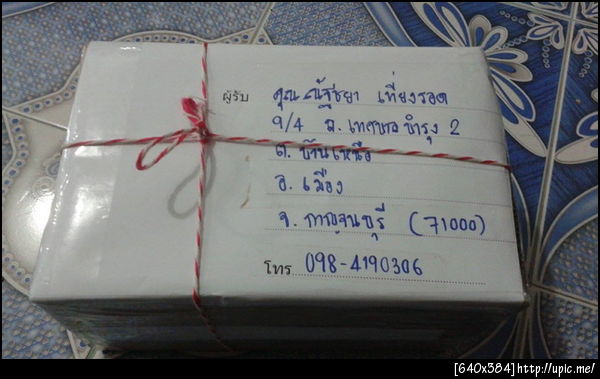 ผู้รับ คุณ ณัฐชยา เที่ยงรอด
9/4 ถ. เทศบาลบำรุง 2
ต. บ้านเหนือ
อ. เมือง
จ. กาญจนบุรี (71000)
โทร 098-4190306
[640x384]http://upic.me/